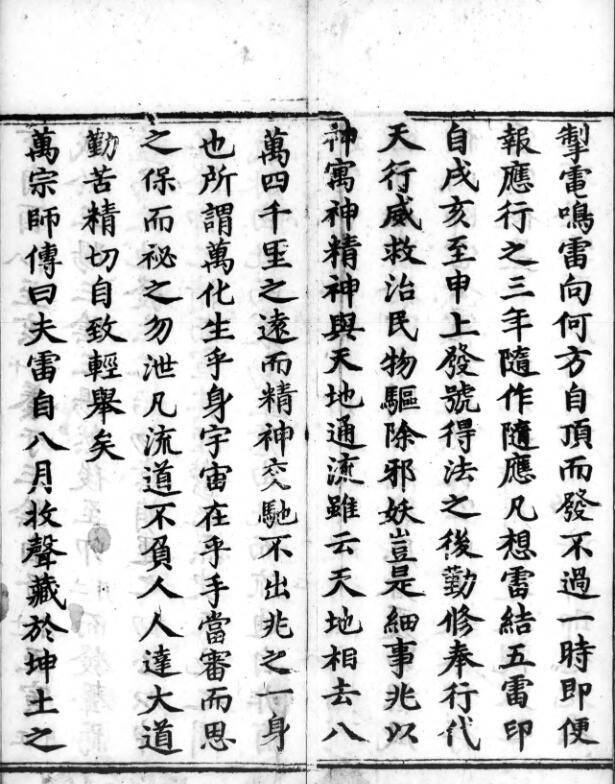 掣雷鳴雷向何方自頂而發不過一時即便
報應行之三年隨作隨應凡想雷結五雷印
自戌亥至申上發號得法之後勤修奉行代
天行威救治民物驅除邪妖豈是細事兆以
神寓神精神與天地通流雖云天地相去八
萬四千里之遠而精神交馳不出兆之一身
也所謂萬化生乎身宇宙在乎手當審而思
之保而祕之勿泄凡流道不負人人達大道
勤苦精切自致輕舉矣
萬宗師傳曰夫雷自八月收聲藏於坤土之